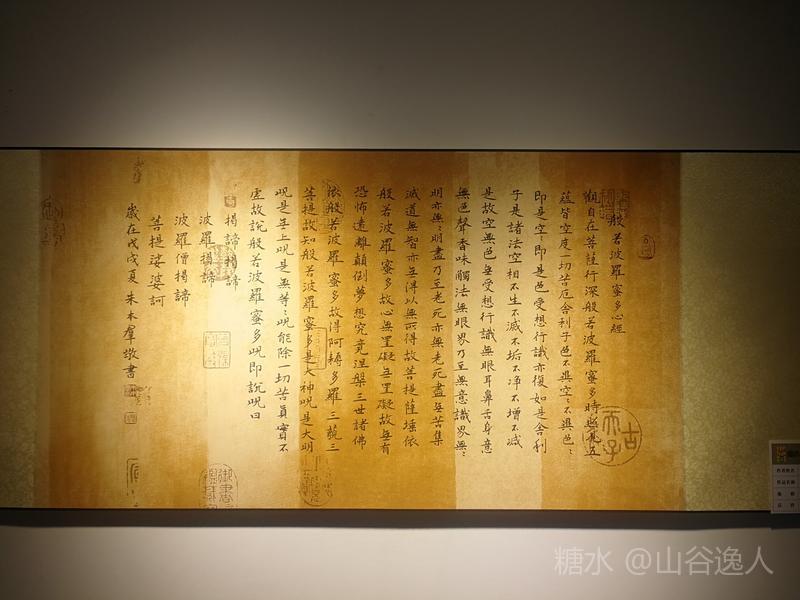 般若波羅蜜多心經
觀自在菩薩行深般若波羅蜜多時照見五
蘊皆空度一切苦厄舍利子色不異空:不異色:
即是空即是色受想行識亦復如是舍利
子是諸法空相不生不滅不垢不淨不增不減
是故空無色無受想行識無眼耳鼻舌身意
無色聲香味觸法無眼界乃至無意識界無:
明亦無:明盡乃至老死亦無老死盡無苦集
滅道無智亦無得以無所得故菩提薩埵依
般若波羅蜜多故心無罣礙無罣礙故無有
恐怖遠離顛倒夢想究竟涅槃三世諸佛
依般若波羅蜜多故得阿耨多羅三藐三
菩提故知般若波羅蜜多是大神呪是大明
呪是無上呪是無等:呪能除一切苦真實不
虛故說般若波羅蜜多呪即說呪曰
揭諦揭諦
波羅揭諦
波羅僧揭諦
菩提娑婆訶
歲在戊戌夏朱本群敬書
糖水 @山谷逸人